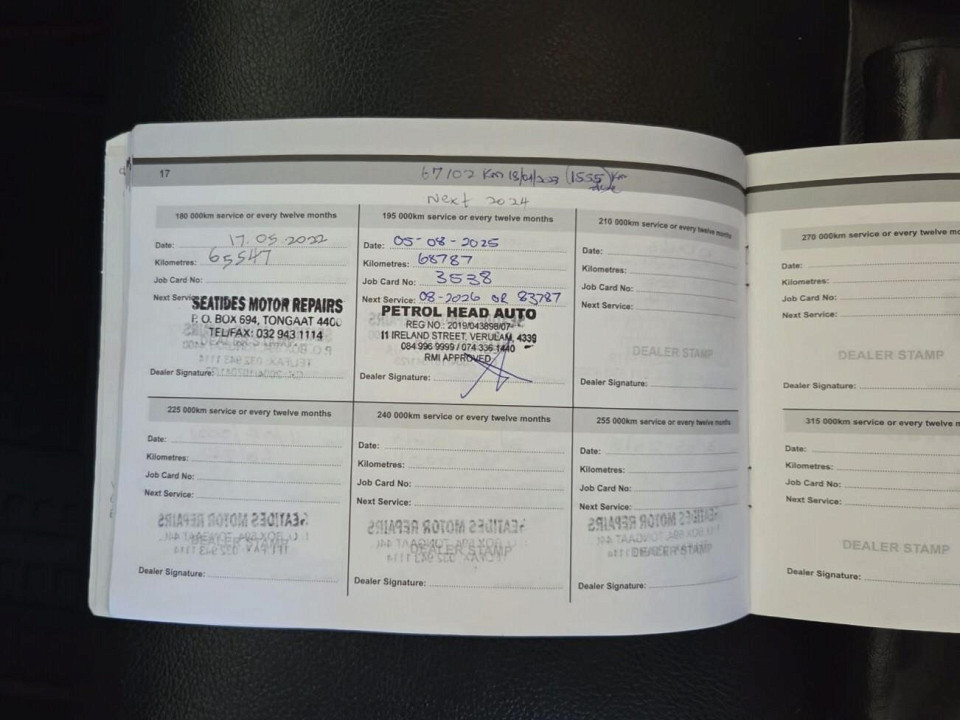 17
67102 Km 18/01/2023 (1555) Km
Next 2024
180 000km service or every twelve months
Date: 17.05.2022
Kilometres: 65547
Job Card No:
Next Service:
SEATIDES MOTOR REPAIRS
P. O. BOX 694, TONGAAT 4400
TEL/FAX: 032 943 1114
Dealer Signature:
195 000km service or every twelve months
Date: 05-08-2025
Kilometres: 68787
Job Card No: 3538
Next Service: 08-2026 OR 83787
PETROL HEAD AUTO
REG NO: 2019/043898/07
11 IRELAND STREET, VERULAM, 4339
084 996 9999 / 074 336 1440
RMI APPROVED
Dealer Signature:
210 000km service or every twelve months
Date:
Kilometres:
Job Card No:
Next Service:
DEALER STAMP
Dealer Signature:
225 000km service or every twelve months
Date:
Kilometres:
Job Card No:
Next Service:
DEALER STAMP
Dealer Signature:
240 000km service or every twelve months
Date:
Kilometres:
Job Card No:
Next Service:
DEALER STAMP
Dealer Signature:
255 000km service or every twelve months
Date:
Kilometres:
Job Card No:
Next Service:
DEALER STAMP
Dealer Signature:
270 000km service or every twelve mo
Date:
Kilometres:
Job Card No:
Next Service:
DEALER STAMP
Dealer Signature:
315 000km service or every twelve m
Date:
Kilometres:
Job Card No:
Next Service:
DEALER STAMP
Dealer Signature: